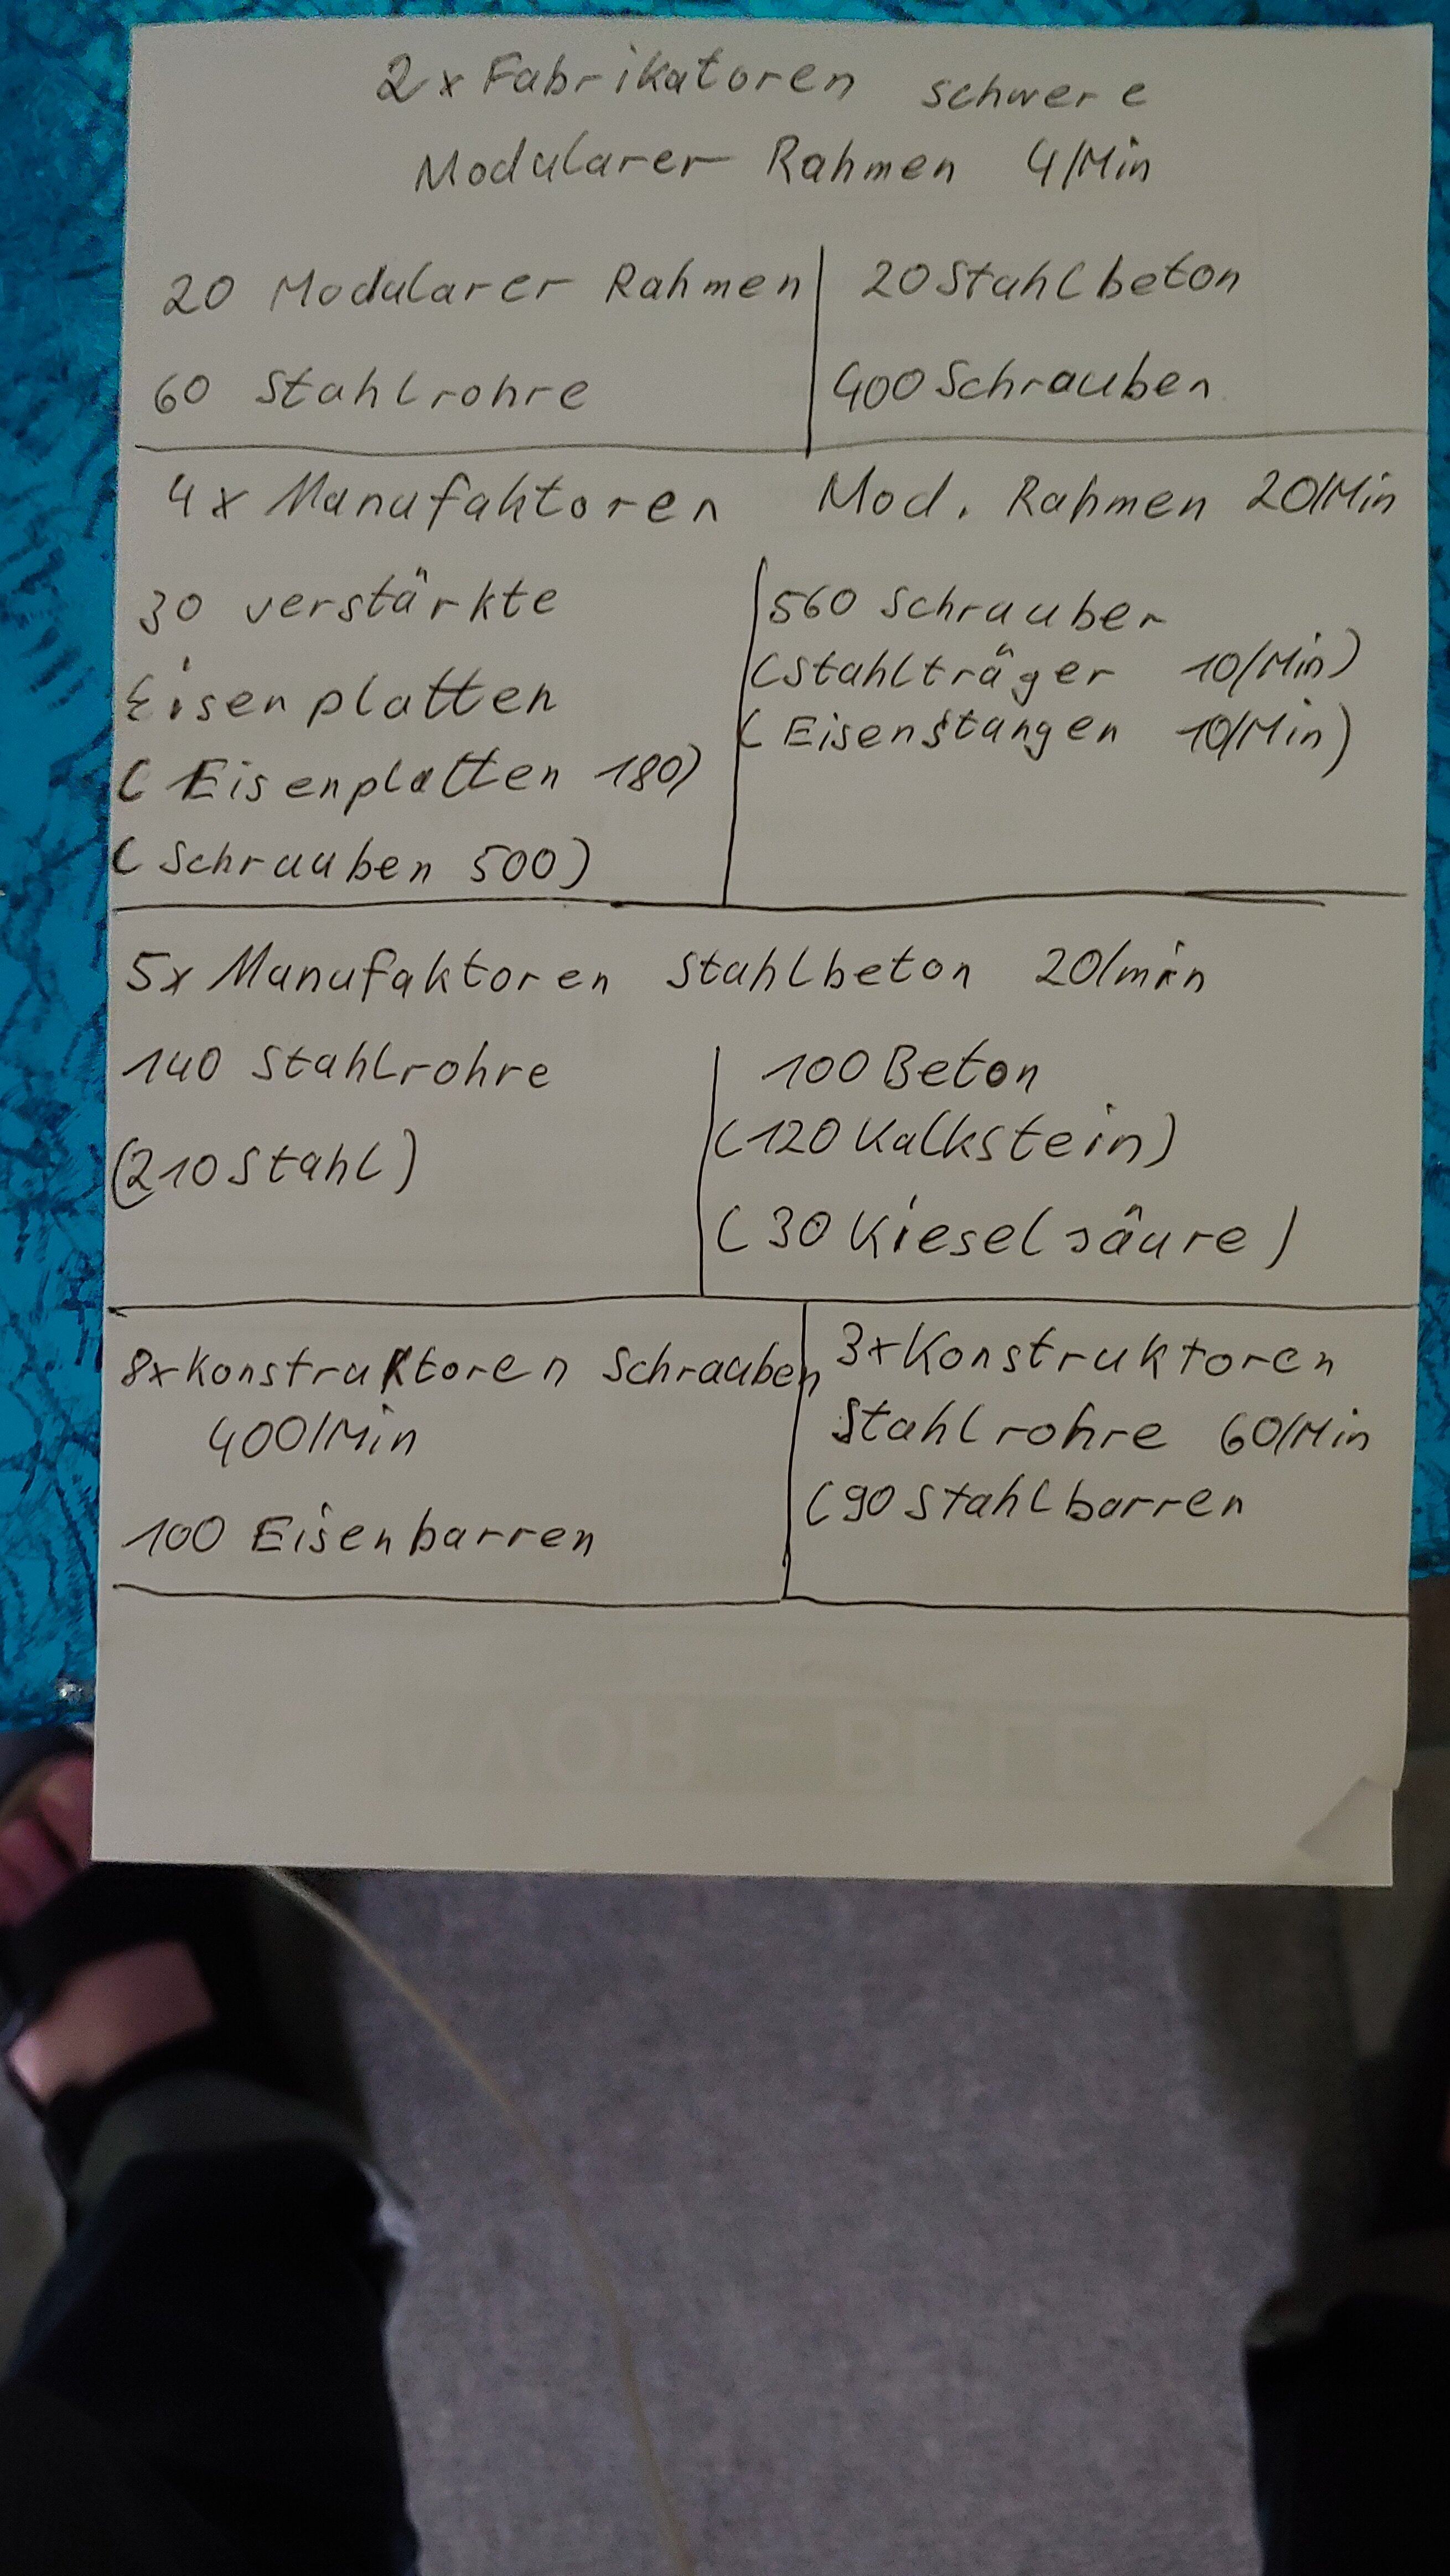 2x Fabrikatoren schwere
Modularer Rahmen 4/Min
20 Modularer Rahmen
60 Stahlrohre
20 Stahlbeton
400 Schrauben
4x Manufaktoren Mod. Rahmen 20/Min
30 verstärkte
Eisenplatten
(Eisenplatten 180)
(Schrauben 500)
560 Schrauben
(Stahlträger 10/Min)
(Eisenstangen 10/Min)
5x Manufaktoren Stahlbeton 20/min
140 Stahlrohre
(210 Stahl)
100 Beton
(120 Kalkstein)
(30 Kieselsäure)
8x Konstruktoren Schrauben
400/Min
100 Eisenbarren
3x Konstruktoren
Stahlrohre 60/Min
(90 Stahlbarren